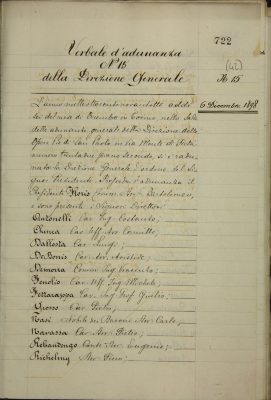 722
Verbale d'adunanza
(42)
N° 15
N 15
della Direzione Generale
6 Dicembre 1898
L'anno mille ottocento novantotto addì
sei del mese di Dicembre in Torino, nella Sala
delle adunanze generali della Direzione delle
Opere Pie di San Paolo in via Monte di Pietà
numero trentadue piano secondo, si è radu-
nata la Direzione Generale d'ordine del Si-
gnor Presidente. Presiede l'adunanza il
Presidente Floris Comm. Avv. Bartolomeo,
e sono presenti i Signori Direttori
Antonelli Cav. Ing. Costanzo,
Chiesa Cav. Uff. Avv. Camillo;
Ballosta Cav. Luigi;
DeBonis Cav. Avv. Aristide;
Demorra Comm. Ing.
Fenolio Cav. Uff. Ing. Michele;
Ferrarappa Cav. Ing. Prof. Giulio;
Grosso Cav. Pietro;
Nasi Nobile dei Baroni Avv. Carlo;
Navassa Cav. Avv. Pietro;
Rebaudengo Conte Avv. Eugenio;
Richelmy Avv.